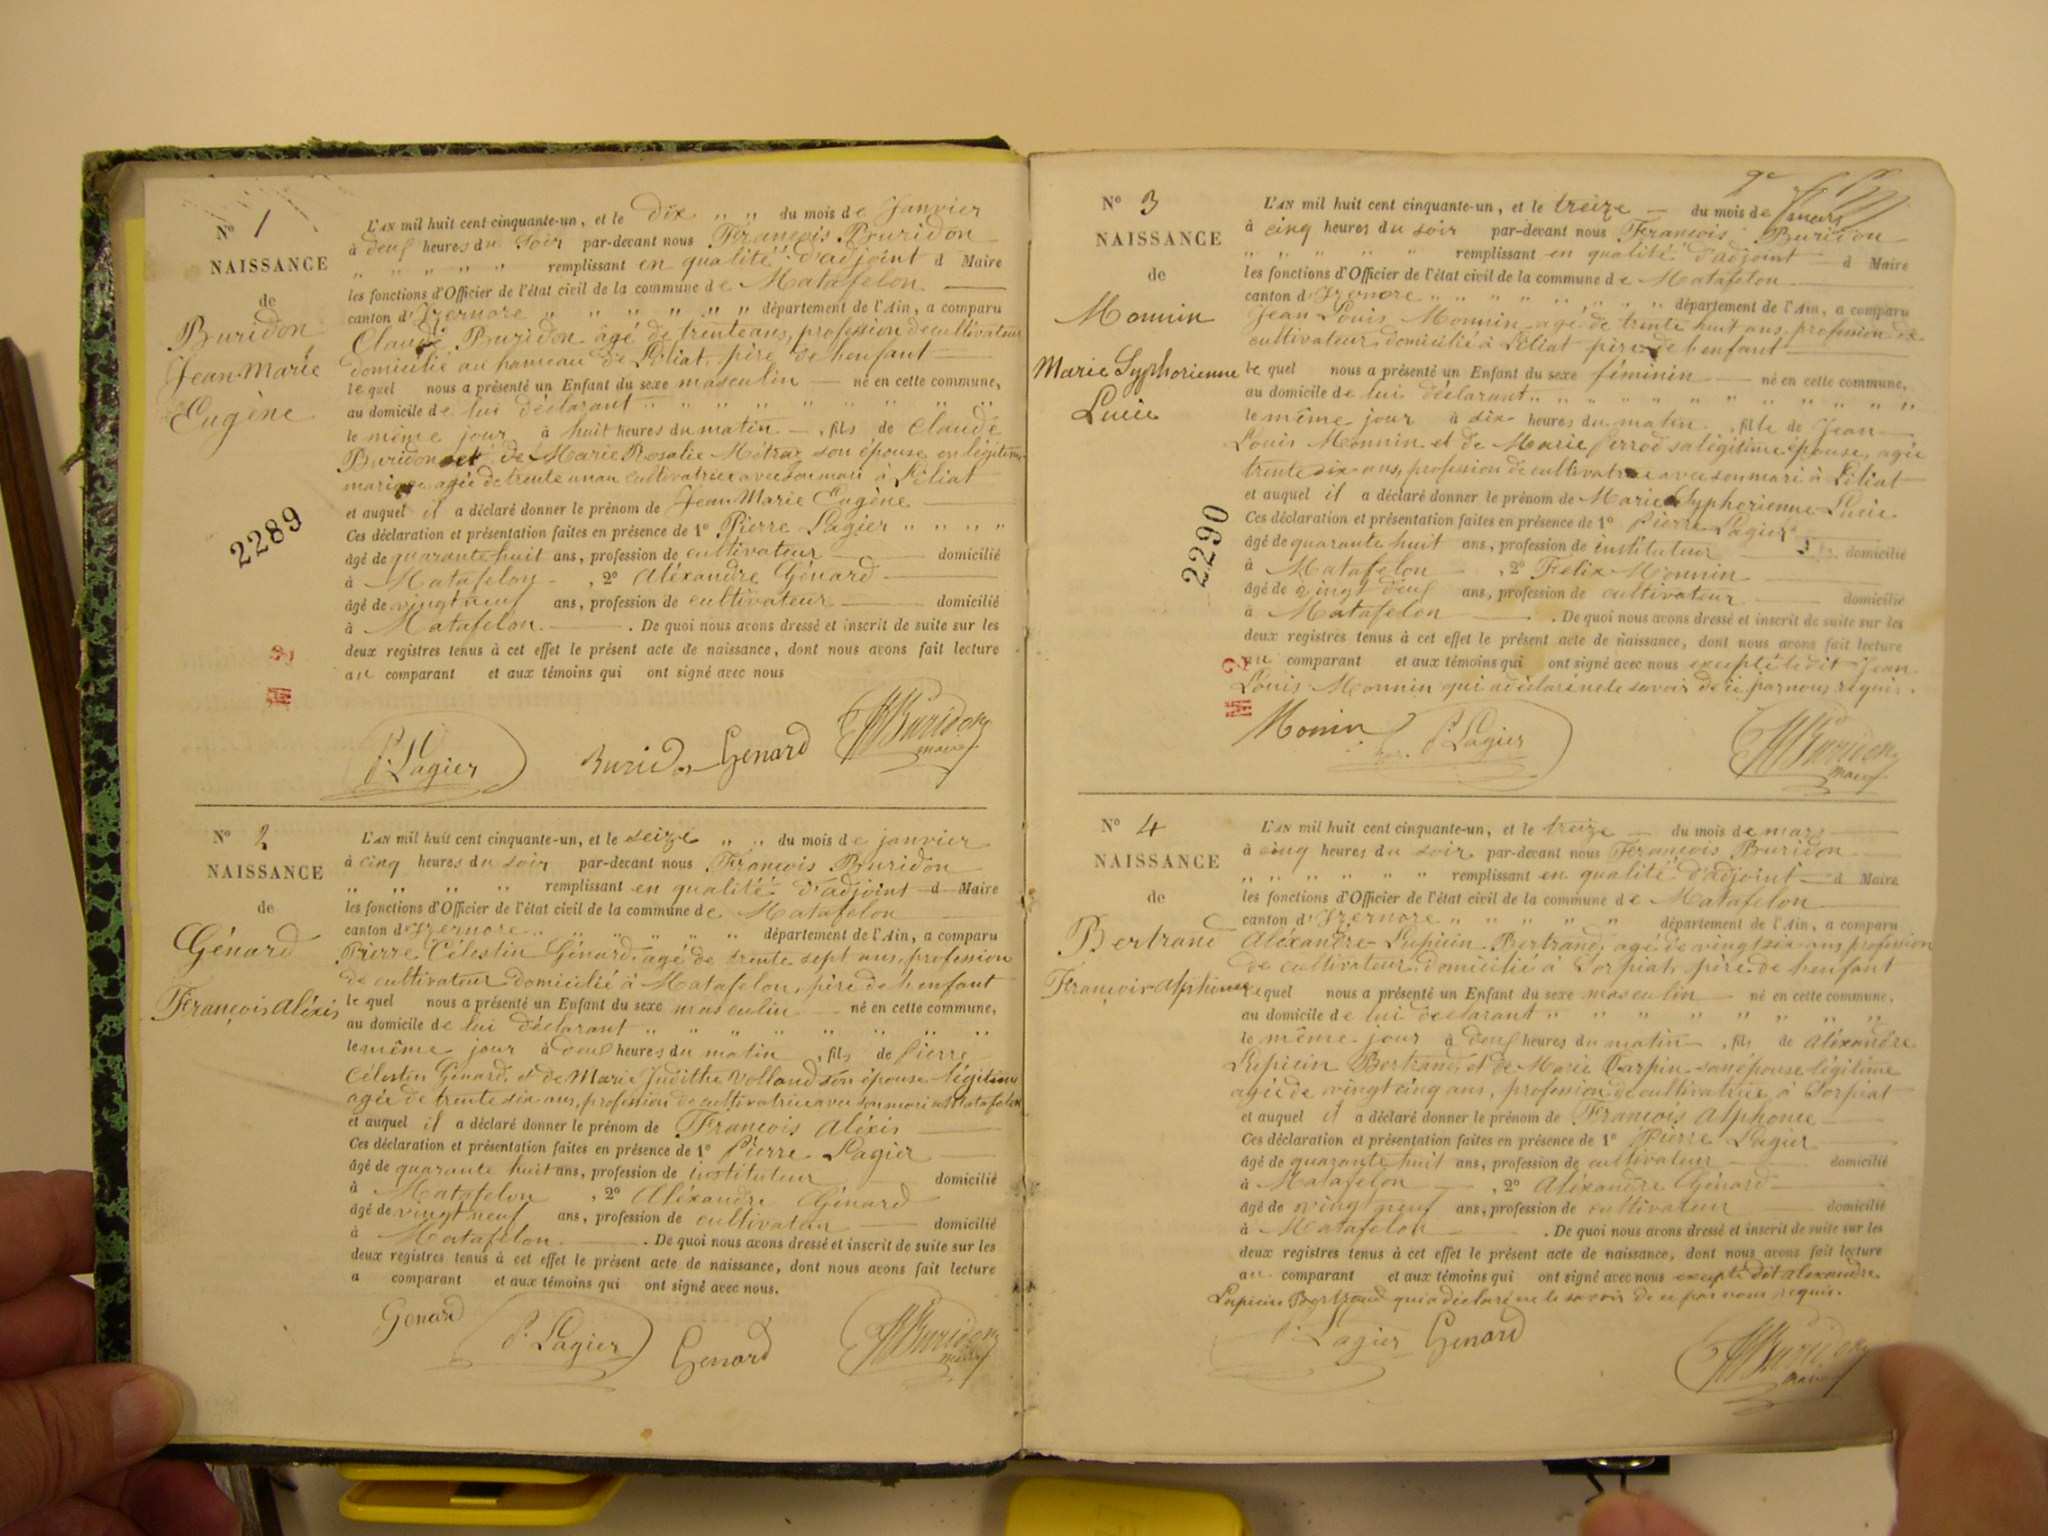 N° 1
NAISSANCE
de
Buridon
Jean Marie
Eugène
2289
L'AN mil huit cent cinquante-un, et le dix " " du mois de Janvier
à deux heures du soir par-devant nous François Buridon
" " " " " remplissant en qualité d'adjoint d Maire
les fonctions d'Officier de l'état civil de la commune de Matafelon
canton d'Izernore " " " " " " département de l'Ain, a comparu
Claude Buridon âgé de trente ans, profession de cultivateur
domicilié au hameau de Péliat père de l'enfant
lequel nous a présenté un Enfant du sexe masculin né en cette commune,
au domicile de lui déclarant " " " " " " " " " "
le même jour à huit heures du matin , fils de Claude
Buridon et de Marie Rosalie Métraz son épouse en légitime
mariage agée de trente un an cultivatrice avec son mari à Péliat
et auquel il a déclaré donner le prénom de Jean Marie Eugène
Ces déclaration et présentation faites en présence de 1° Pierre Lagier " " " "
âgé de quarante huit ans, profession de cultivateur domicilié
à Matafelon , 2° Aléxandre Génard
âgé de vingt neuf ans, profession de cultivateur domicilié
à Matafelon . De quoi nous avons dressé et inscrit de suite sur les
deux registres tenus à cet effet le présent acte de naissance, dont nous avons fait lecture
au comparant et aux témoins qui ont signé avec nous
P. Lagier Buridon Genard Buridon
maire
N° 2
NAISSANCE
de
Génard
François Aléxis
L'AN mil huit cent cinquante-un, et le seize " " du mois de janvier
à cinq heures du soir par-devant nous François Buridon
" " " " remplissant en qualité d'adjoint d Maire
les fonctions d'Officier de l'état civil de la commune de Matafelon
canton d'Izernore " " " " " " département de l'Ain, a comparu
Pierre Célestin Génard, agé de trente sept ans, profession
de cultivateur domicilié à Matafelon, père de l'enfant
lequel nous a présenté un Enfant du sexe masculin né en cette commune,
au domicile de lui déclarant " " " " " " " "
le même jour à deux heures du matin , fils de Pierre
Célestin Génard, et de Marie Judithe Volland son épouse légitime
agée de trente six ans, profession de cultivatrice avec son mari à Matafelon
et auquel il a déclaré donner le prénom de François Aléxis
Ces déclaration et présentation faites en présence de 1° Pierre Lagier
âgé de quarante huit ans, profession de instituteur domicilié
à Matafelon , 2° Aléxandre Génard
âgé de vingt neuf ans, profession de cultivateur domicilié
à Matafelon . De quoi nous avons dressé et inscrit de suite sur les
deux registres tenus à cet effet le présent acte de naissance, dont nous avons fait lecture
a comparant et aux témoins qui ont signé avec nous.
Genard P. Lagier Genard Buridon
maire
N° 3
NAISSANCE
de
Monnin
Marie Syphorienne
Lucie
2290
L'AN mil huit cent cinquante-un, et le treize du mois de mars
à cinq heures du soir par-devant nous François Buridon
" " " " " remplissant en qualité d'adjoint d Maire
les fonctions d'Officier de l'état civil de la commune de Matafelon
canton d'Izernore " " " " " " " " département de l'Ain, a comparu
Jean Louis Monnin agé de trente huit ans profession de
cultivateur domicilié à Péliat père de l'enfant
lequel nous a présenté un Enfant du sexe féminin né en cette commune,
au domicile de lui déclarant " " " " " " " " " "
le même jour à dix heures du matin , fille de Jean
Louis Monnin et de Marie Perrod sa légitime épouse, agée
trente six ans, profession de cultivatrice avec son mari à Péliat
et auquel il a déclaré donner le prénom de Marie Syphorienne Lucie
Ces déclaration et présentation faites en présence de 1° Pierre Lagier
âgé de quarante huit ans, profession de instituteur domicilié
à Matafelon , 2° Felix Monnin
âgé de vingt deux ans, profession de cultivateur domicilié
à Matafelon . De quoi nous avons dressé et inscrit de suite sur les
deux registres tenus à cet effet le présent acte de naissance, dont nous avons fait lecture
au comparant et aux témoins qui ont signé avec nous excepté ledit Jean
Louis Monnin qui a déclaré ne le savoir de ce par nous requis.
Monin P. Lagier Buridon
maire
N° 4
NAISSANCE
de
Bertrand
François Alphonse
L'AN mil huit cent cinquante-un, et le treize du mois de mars
à cinq heures du soir par-devant nous François Buridon
" " " " " " remplissant en qualité d'adjoint d Maire
les fonctions d'Officier de l'état civil de la commune de Matafelon
canton d'Izernore " " " " " " département de l'Ain, a comparu
Aléxandre Lupicin Bertrand, agé de vingt six ans profession
de cultivateur domicilié à Corpiat, père de l'enfant
lequel nous a présenté un Enfant du sexe masculin né en cette commune,
au domicile de lui déclarant " " " " " " " "
le même jour à deux heures du matin , fils de Aléxandre
Lupicin Bertrand, et de Marie Carpin son épouse légitime
agée de vingt cinq ans, profession de cultivatrice à Corpiat
et auquel il a déclaré donner le prénom de François Alphonse
Ces déclaration et présentation faites en présence de 1° Pierre Lagier
âgé de quarante huit ans, profession de cultivateur domicilié
à Matafelon , 2° Aléxandre Génard
âgé de vingt neuf ans, profession de cultivateur domicilié
à Matafelon . De quoi nous avons dressé et inscrit de suite sur les
deux registres tenus à cet effet le présent acte de naissance, dont nous avons fait lecture
au comparant et aux témoins qui ont signé avec nous excepté dit Alexandre
Lupicin Bertrand qui a déclaré ne le savoir de ce par nous requis.
P. Lagier Genard Buridon
maire